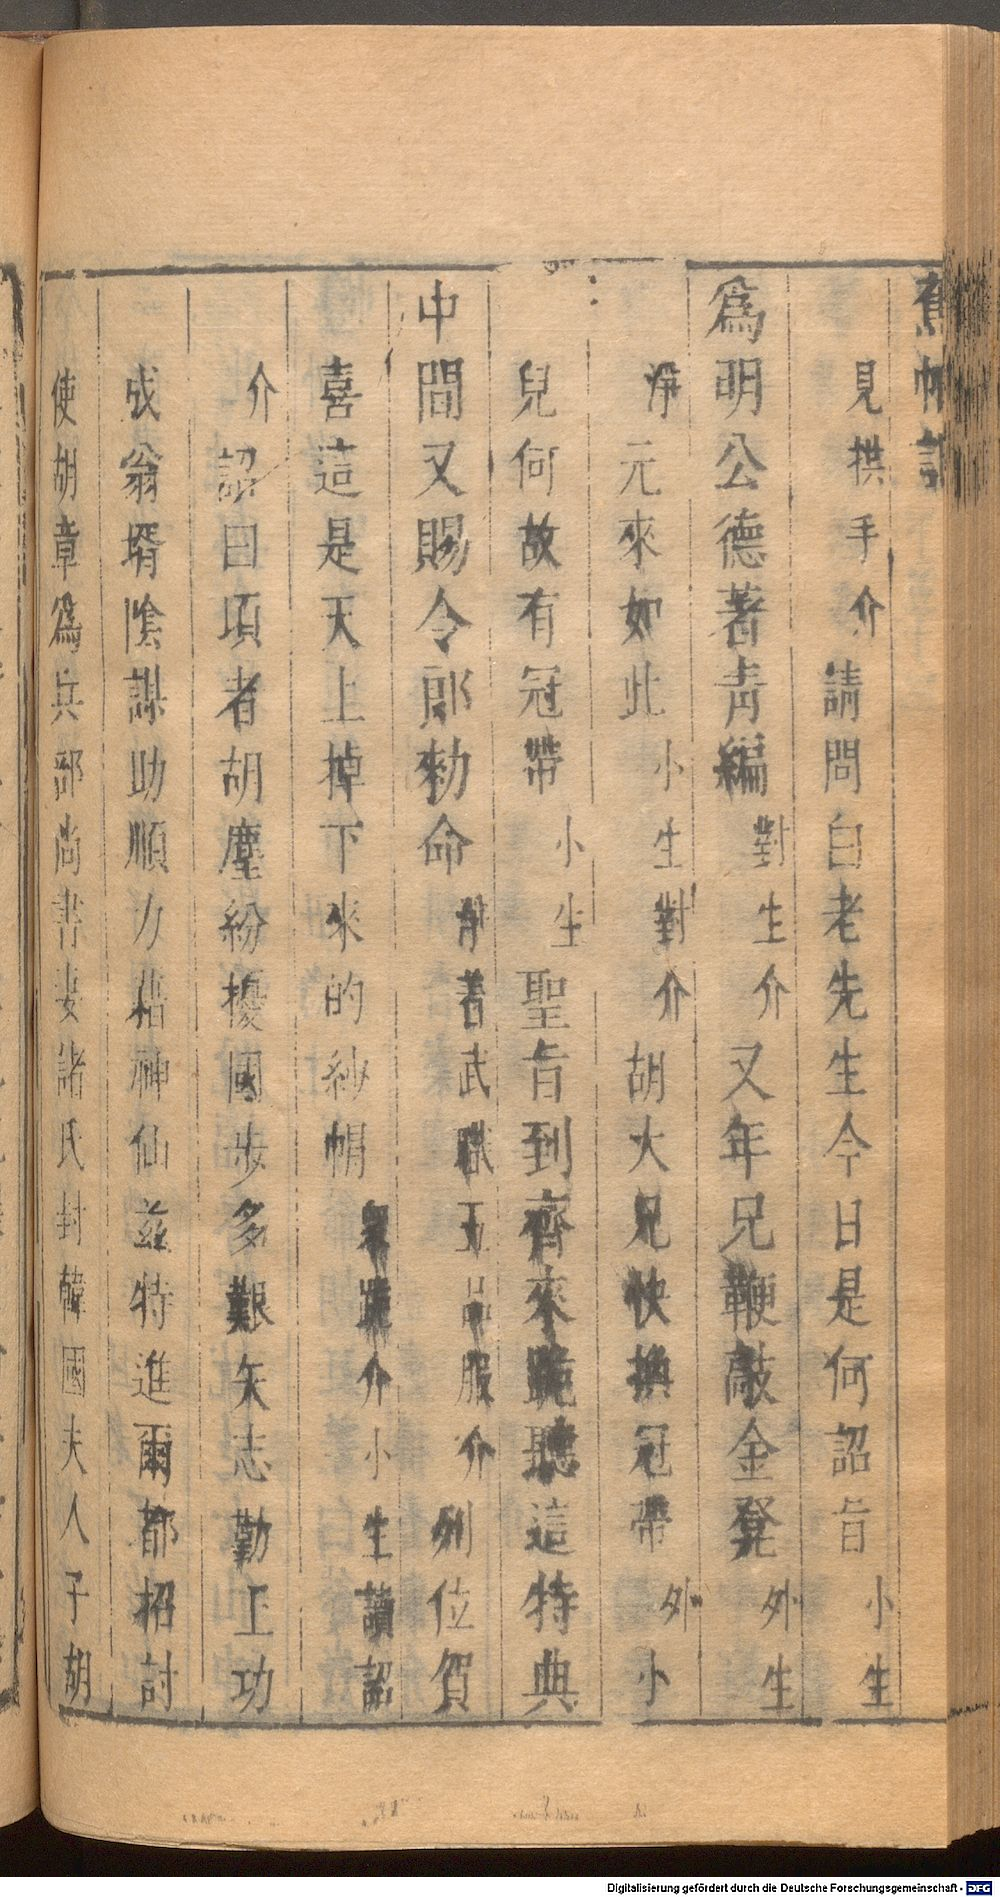 蕉帕記
見拱手介請問白老先生今日是何詔旨小生
為明公德著青編對生介又年兄鞭敲金凳外生
淨元來如此小生對介胡大兄快換冠帶外小
兒何故有冠帶小生聖旨到齊來跪聽這特典
中間又賜令郎勑命着武職五品服介列位賀
喜這是天上掉下來的紗帽衆跪介小生讀詔
介詔曰項者胡塵紛擾國步多艱矢志勤王功
成翁壻陰謀助順力藉神仙茲特進爾都招討
使胡章爲兵部尚書妻諸氏封韓國夫人子胡
Digitalisierung gefördert durch die Deutsche Forschungsgemeinschaft - DFG